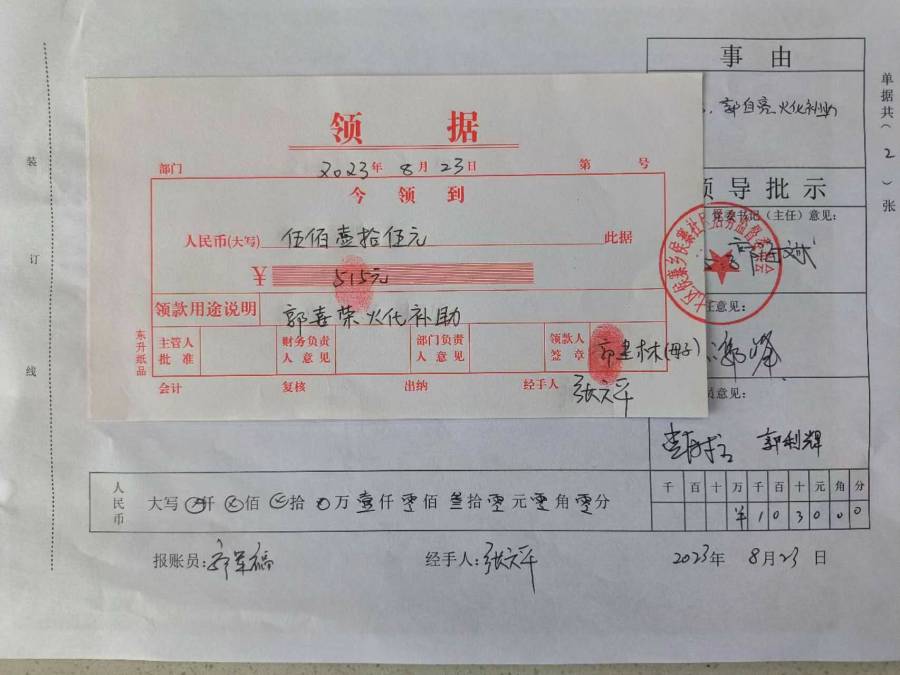 事由
郭自亮火化补助
单据共(2)张
装订线
领据
部门 2023年8月23日 第 号
今领到
人民币(大写) 伍佰壹拾伍元 此据
¥ 515元
领款用途说明 郭喜荣火化补助
主管人批准 财务负责人意见 部门负责人意见 领款人签章 郭建林(母子)
会计 复核 出纳 经手人 张六平
东升纸品
领导批示
党委书记(主任)意见:
任意见:
员意见:
郭利辉
人民币 大写 仟 佰 拾 万 壹仟 零佰 叁拾 零元 零角 零分
千 百 十 万 千 百 十 元 角 分
¥ 1 0 3 0 0 0
报账员: 经手人: 张六平 2023年8月23日